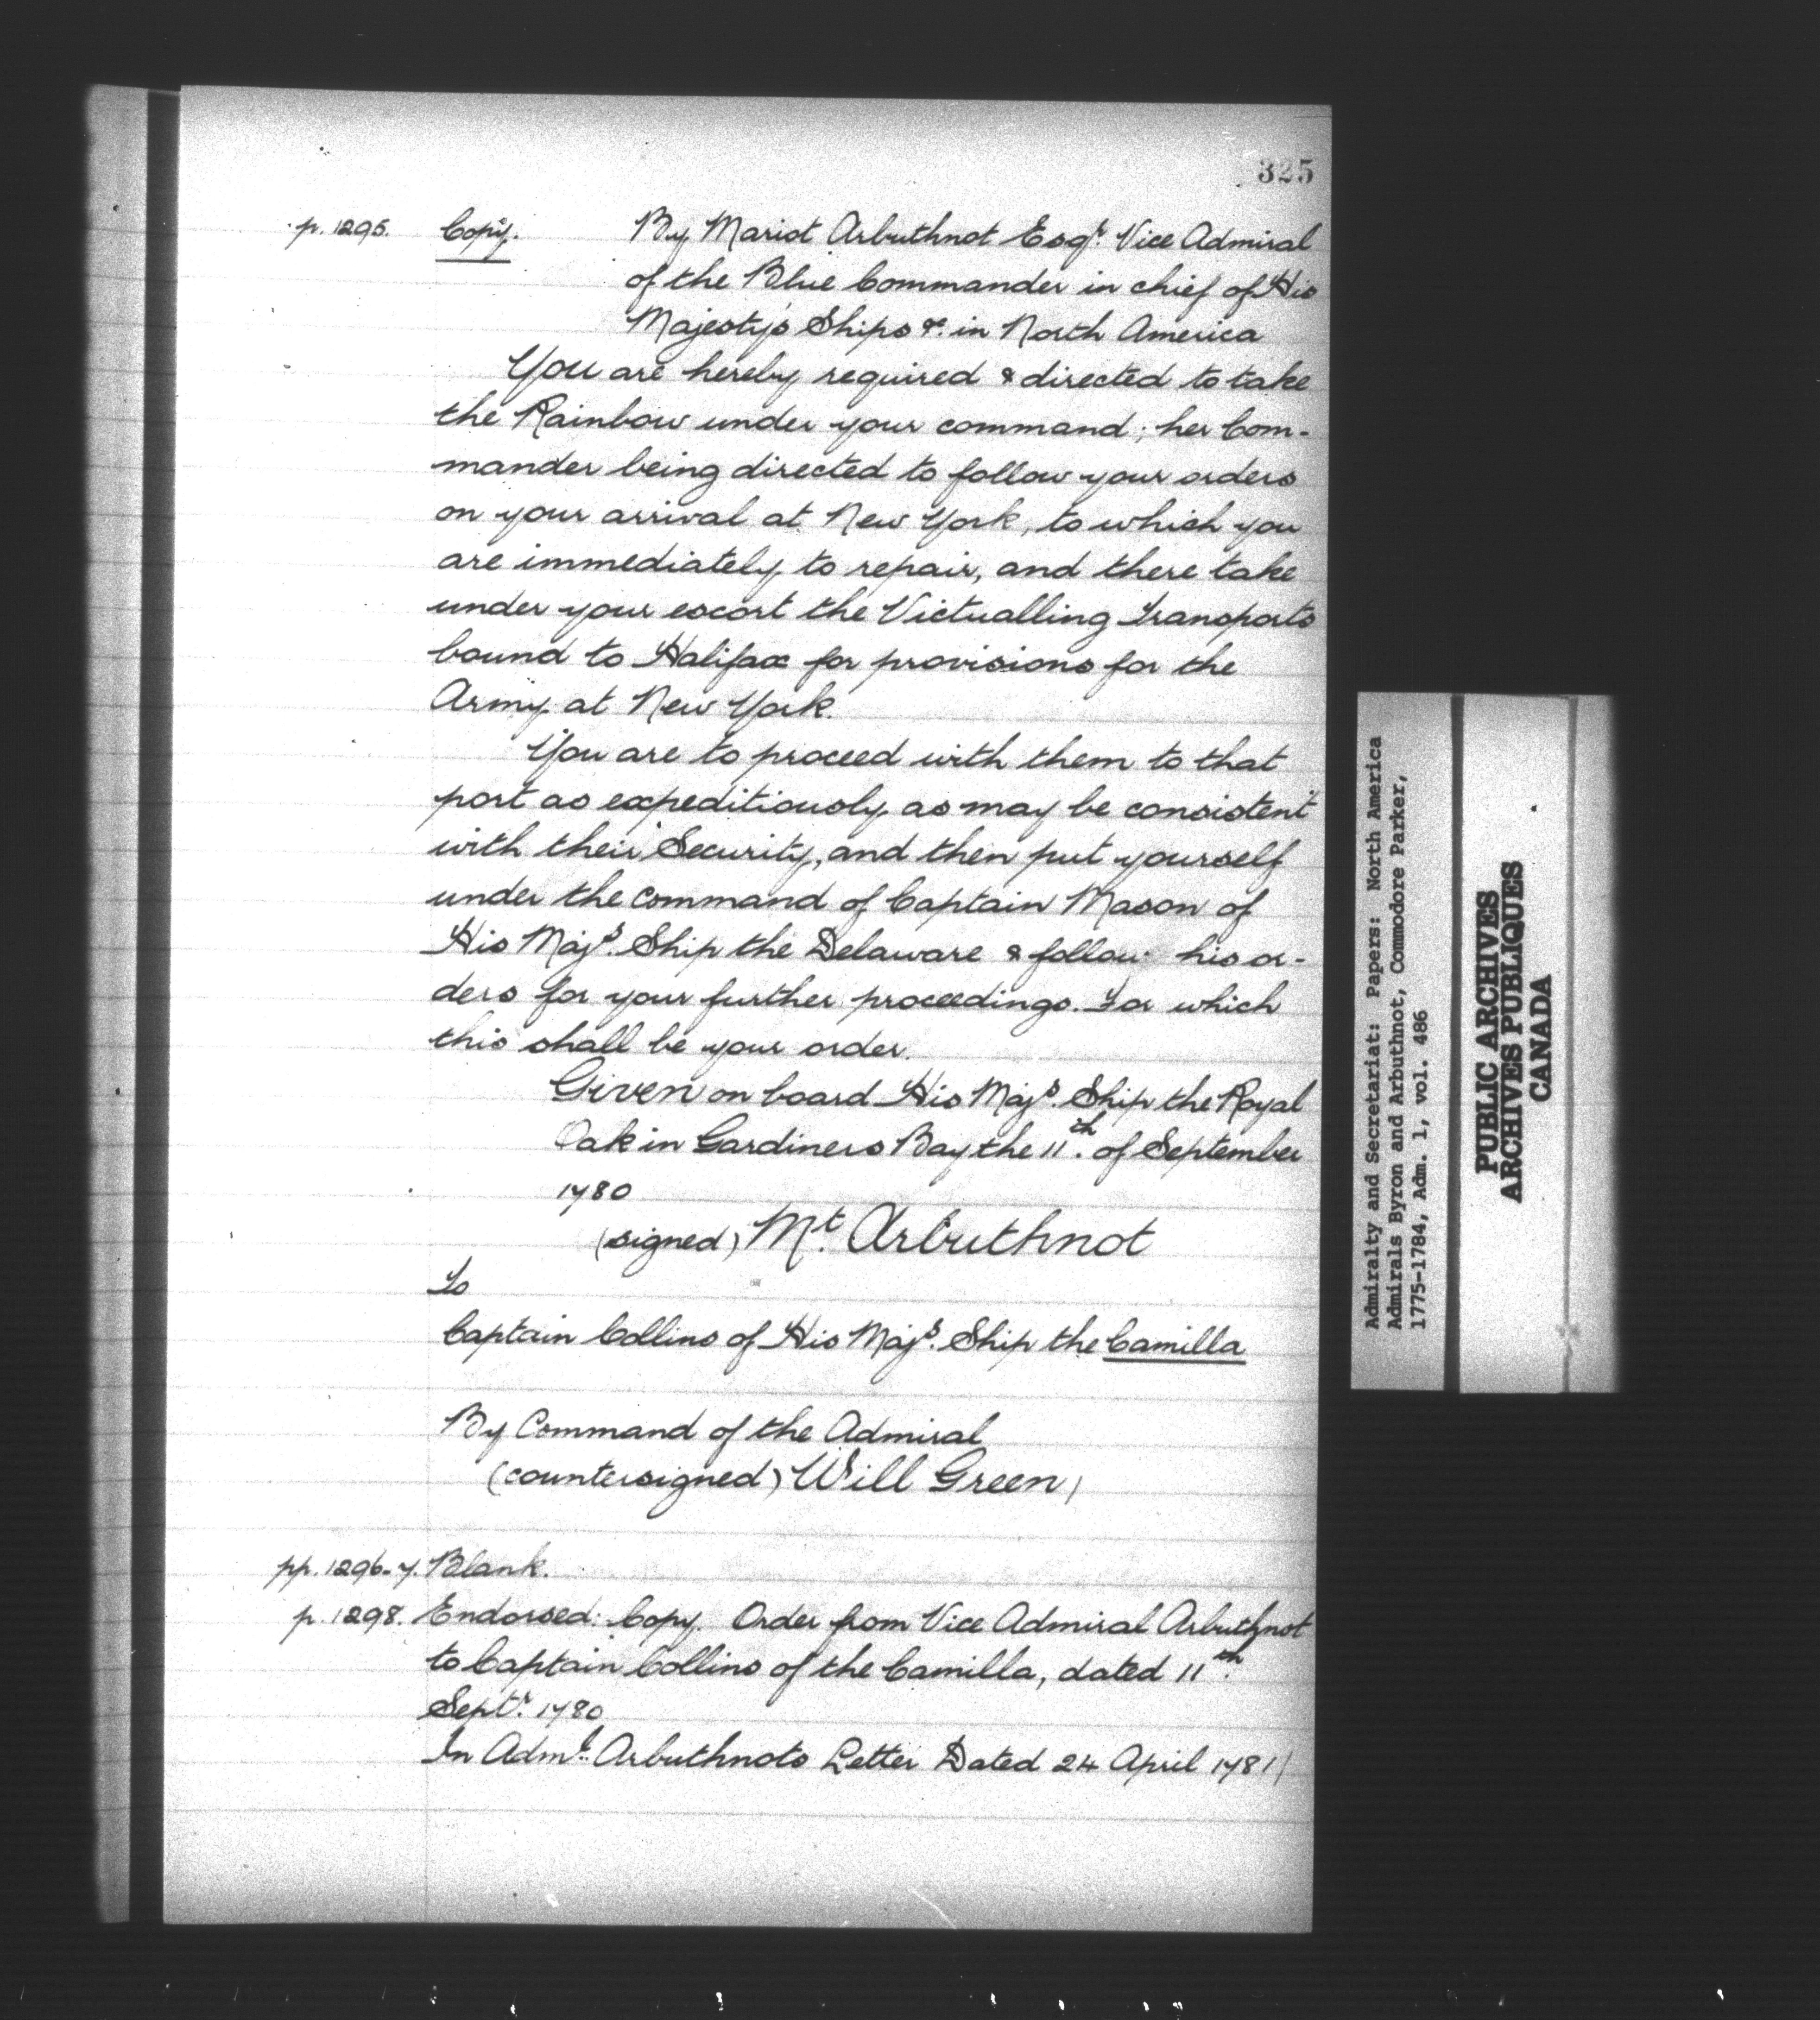 325
p. 1295. Copy. By Mariot Arbuthnot Esqr. Vice Admiral
of the Blue Commander in chief of His
Majesty's Ships &. in North America
You are hereby required & directed to take
the Rainbow under your command; her Com-
mander being directed to follow your orders
on your arrival at New York, to which you
are immediately to repair, and there take
under your escort the Victualling Transports
bound to Halifax for provisions for the
Army at New York.
You are to proceed with them to that
port as expeditiously as may be consistent
with their Security, and then put yourself
under the command of Captain Mason of
His Majs. Ship the Delaware & follow his or-
ders for your further proceedings. For which
this shall be your order.
Given on board His Majs. Ship the Royal
Oak in Gardiners Bay the 11th. of September
1780
(signed) Mt. Arbuthnot
To
Captain Collins of His Majs. Ship the Camilla
By Command of the Admiral
(countersigned) Will Green)
pp. 1296-7. Blank.
p. 1298. Endorsed: Copy. Order from Vice Admiral Arbuthnot
to Captain Collins of the Camilla, dated 11th.
Septr. 1780
In Adml. Arbuthnots Letter Dated 24 April 1781)
Admiralty and Secretariat: Papers: North America
Admirals Byron and Arbuthnot, Commodore Parker,
1775-1784, Adm. 1, vol. 486
PUBLIC ARCHIVES
ARCHIVES PUBLIQUES
CANADA